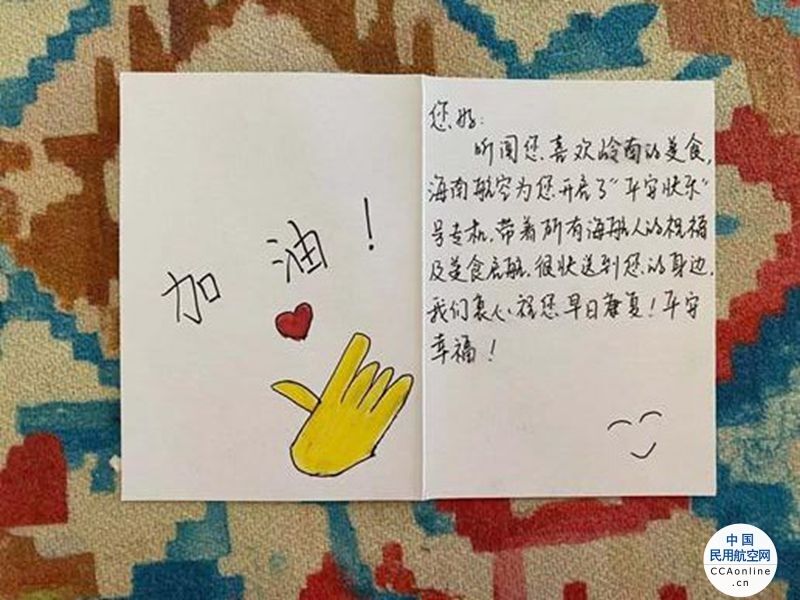 加油！
您好：
听闻您喜欢岭南的美食，
海南航空为您开启了“平安快乐”
号专机，带着所有海航人的祝福
及美食启航，很快送到您的身边，
我们衷心祝您早日康复！平安
幸福！
中国
民用航空网
CCAonline
.cn